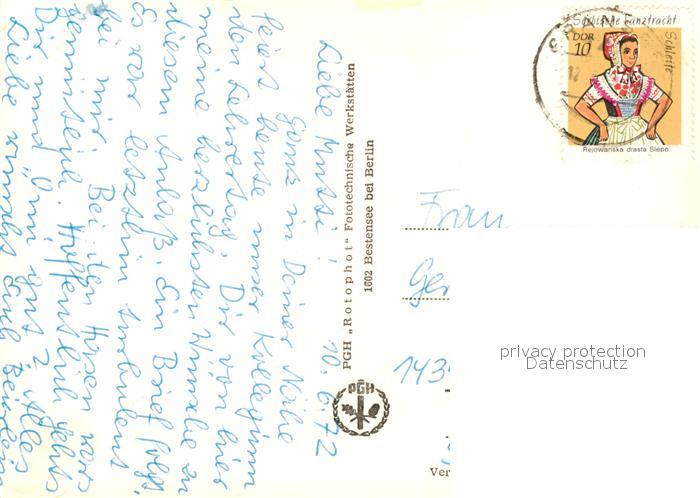 10. 6. 72
Liebe Mutti!
Ganz in Deiner Nähe
feiert heute unser Kollegium
den Lehrertag. Dir von hier
meine herzlichsten Wünsche zu
diesem Anlaß. Ein Brief folgt.
Es war letztlich turbulent
bei mir. Bei den Husen war
Hoffentlich gehts
Dir und Omi gut? Alles
Liebe
PGH „Rotophot" Fototechnische Werkstätten
1602 Bestensee bei Berlin
PGH
Sorbische Tanztracht
Schleife
DDR
10
Rejowańska drasta Slepo
Frau
Ger
143
Ver
privacy protection
Datenschutz